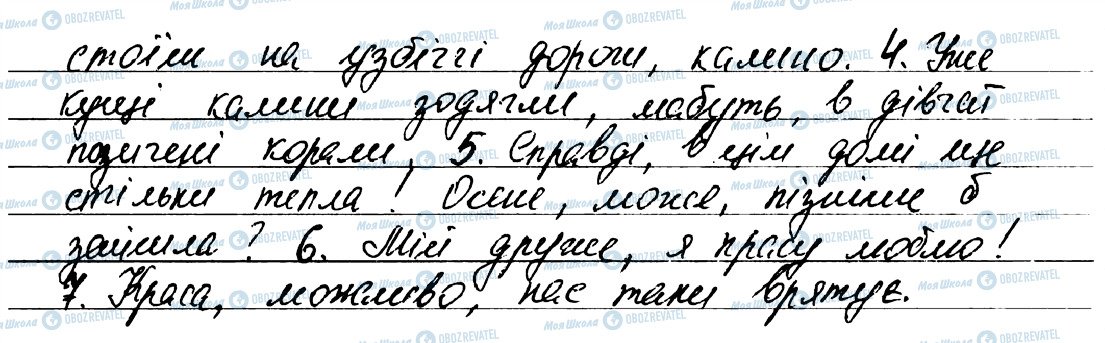 стоїш на узбіччі дороги, калино. 4. Уже
кущі калини зодягли, мабуть, в дівчат
позичені корали, 5. Справді, в цім домі ще
стільки тепла! Осене, може, пізніше б
зайшла? 6. Мій друже, я красу люблю!
7. Краса, можливо, нас таки врятує.